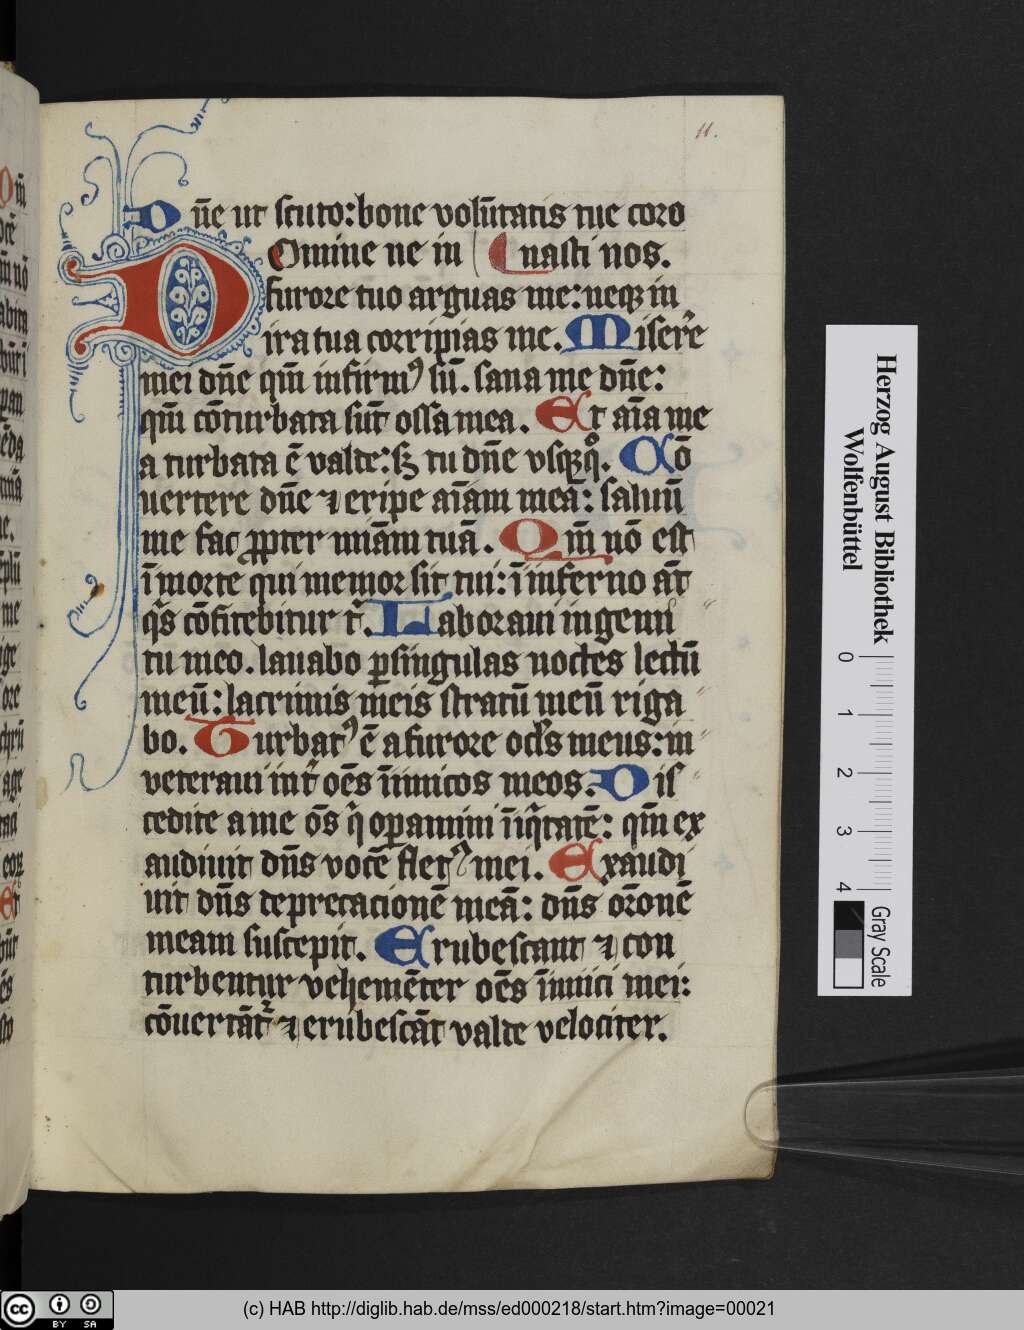 11.
Dn̄e ut scuto: bone volūtatis tue coro
Domine ne in nasti nos.
furore tuo arguas me: neqꝫ in
ira tua corripias me. Miser̄e
mei dn̄e qm̄ infirmꝰ sū. sana me dn̄e:
qm̄ cōturbata sūt ossa mea. Et aīa me
a turbata ē valde: sꝫ tu dn̄e vsqꝫq̊. Cō
uertere dn̄e ⁊ eripe aīam meā: saluū
me fac ꝓpter mīam tuā. Qm̄ nō est
ī morte qui memor sit tui: ī inferno āt
qͥs cōfitebitur t̄. Laboraui in gemi
tu meo. lauabo ꝑ singulas noctes lectū
meū: lacrimis meis stratū meū riga
bo. Turbatꝰ ē a furore ocl̄s meus: in
ueteraui int̄ oēs īimicos meos. Dis
cedite a me ōs qͥ operamini īiqͥtatē: qm̄ ex
audiuit dn̄s vocē fletꝰ mei. Exaudi
uit dn̄s deprecacionē meā: dn̄s or̄onē
meam suscepit. Erubescant ⁊ con
turbentur vehemēter oēs īimici mei:
cōuertāt᷑ ⁊ erubescāt valde velociter.
Herzog August Bibliothek
Wolfenbüttel
0
1
2
3
4
Gray Scale
cc BY SA
(c) HAB http://diglib.hab.de/mss/ed000218/start.htm?image=00021